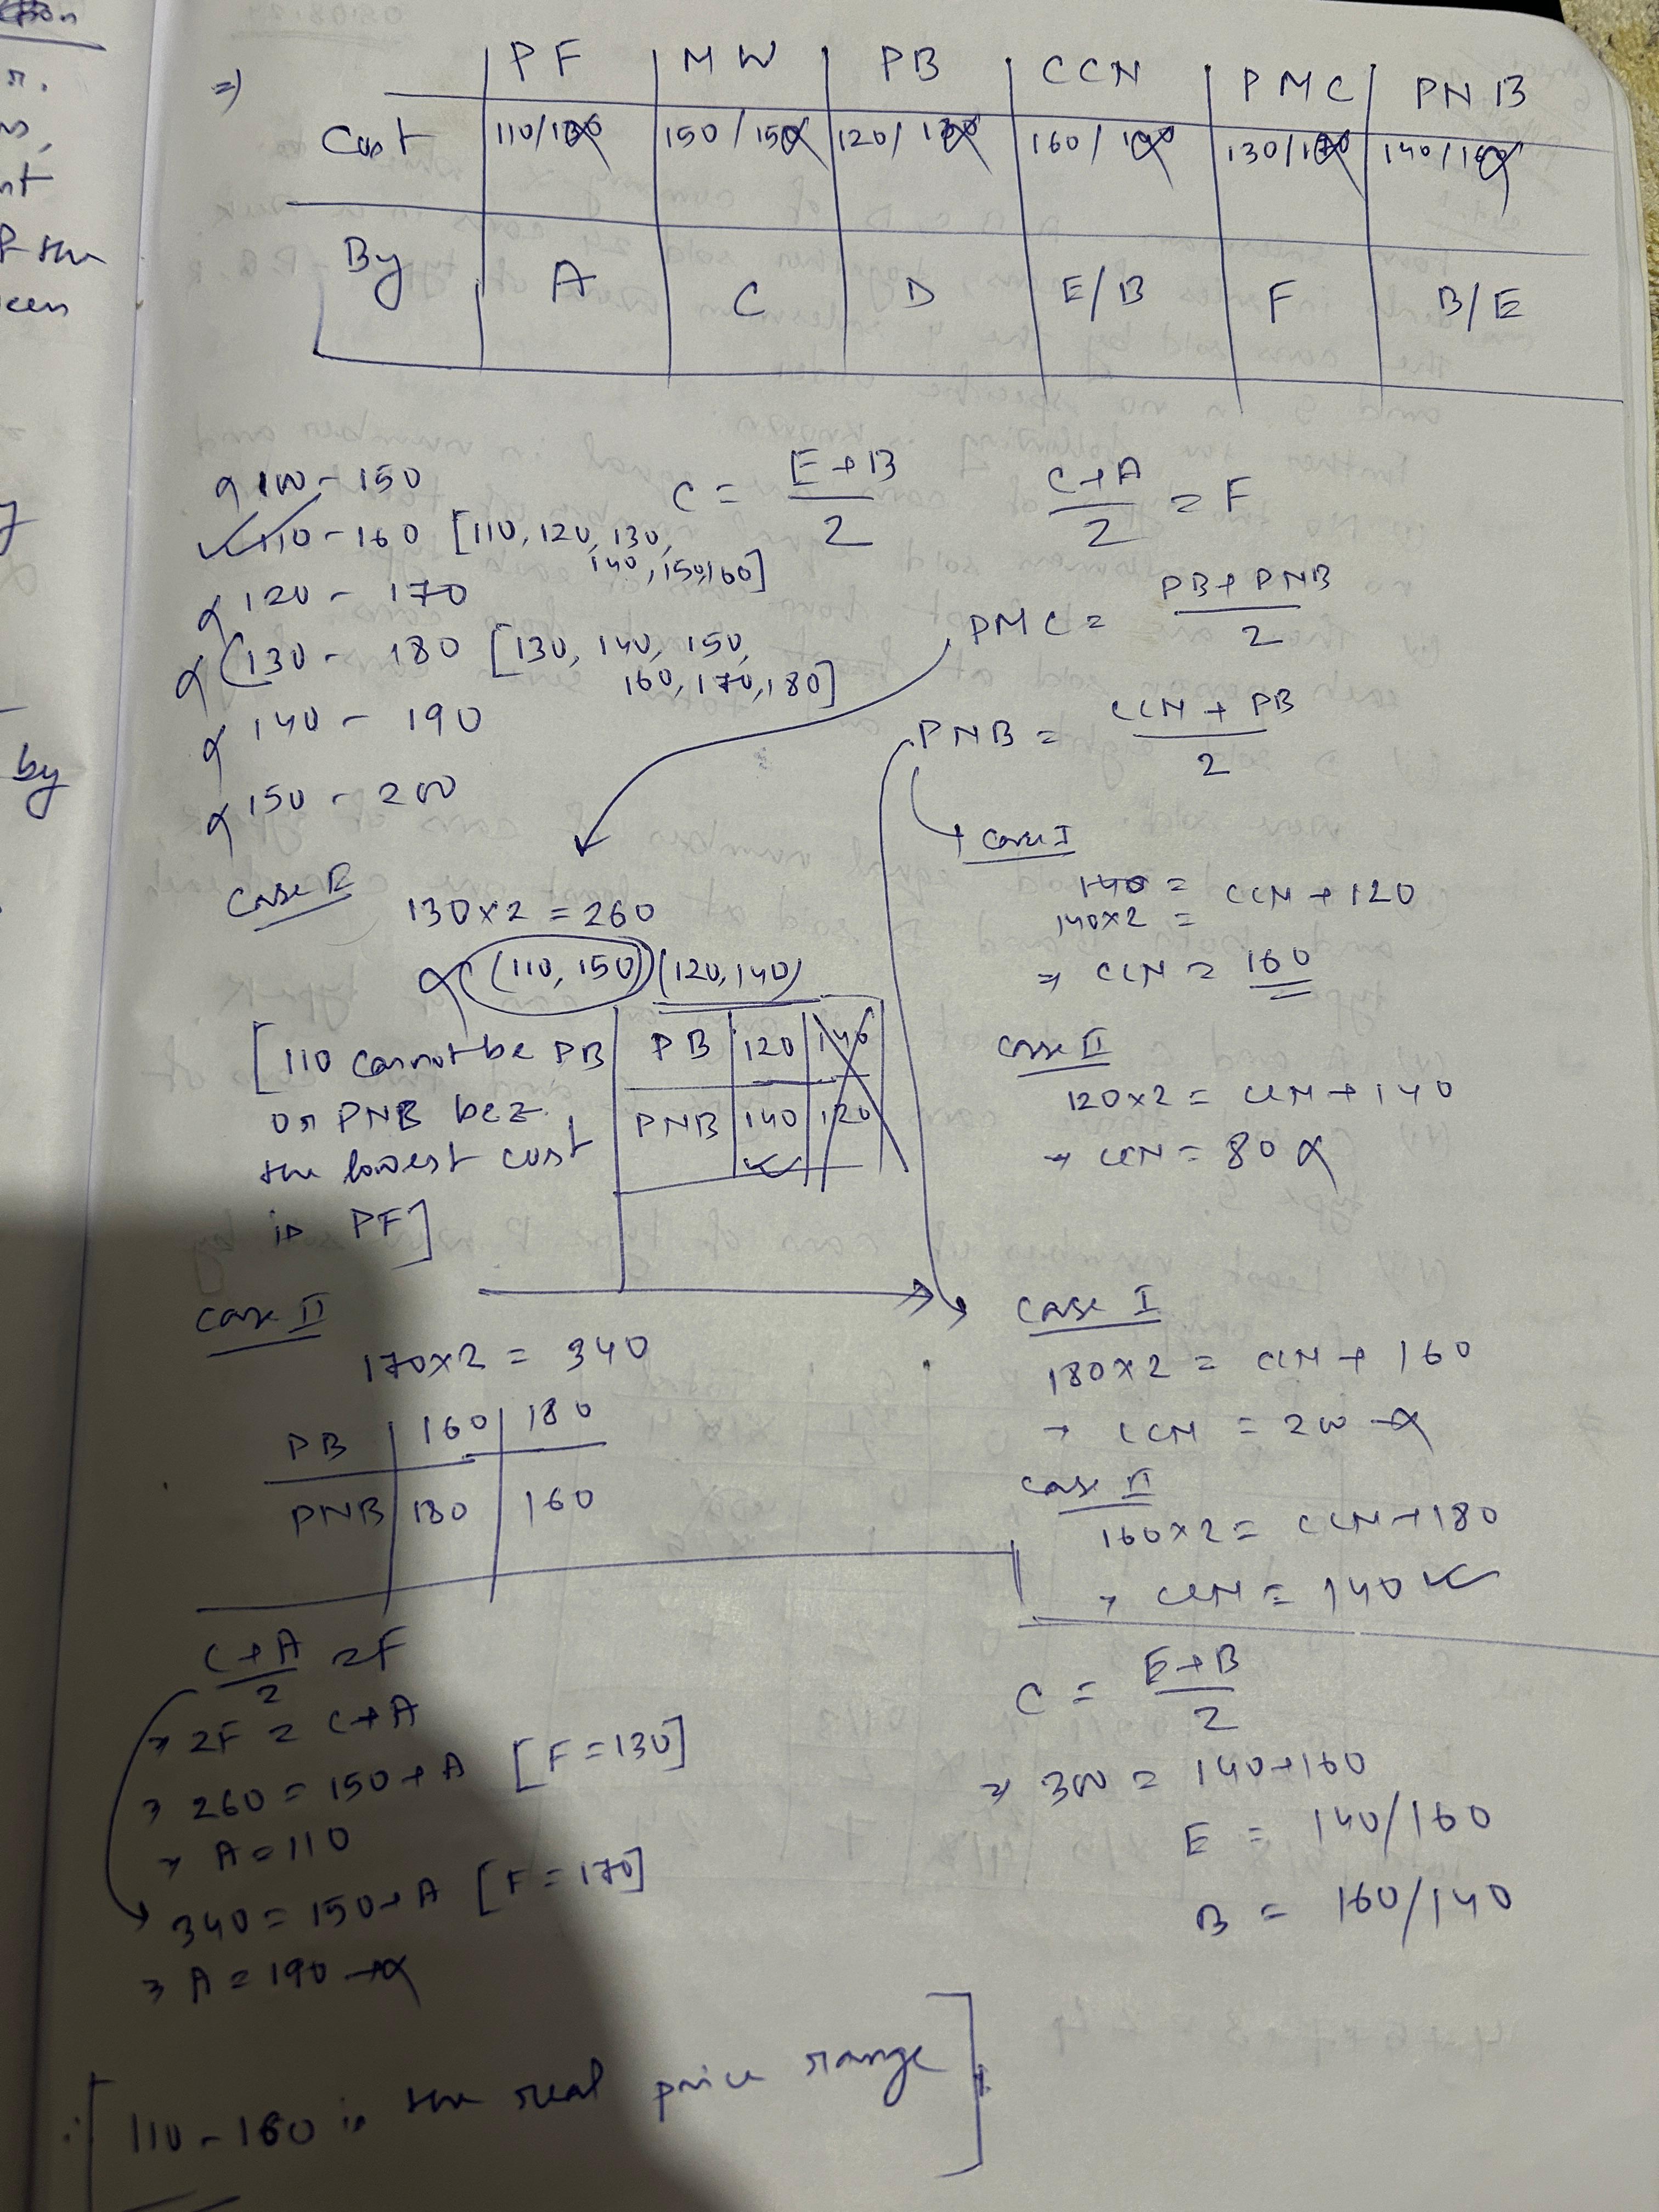 r.
nt
f the
by
=) PF MW PB CCN PMC PNB
Cost 110/ 150 / 150 120/ 160 / 130/ 140 /
By A C D E/B F B/E
100 - 150
110 - 160 [110, 120, 130, 140, 150, 160]
120 - 170
130 - 180 [130, 140, 150, 160, 170, 180]
140 - 190
150 - 200
C = E+B / 2
C+A / 2 = F
PMC = PB+PNB / 2
PNB = CCN + PB / 2
Case I
140 =
140×2 = CCN + 120
⇒ CCN = 160
Case II
120×2 = CCN + 140
→ CCN = 80 α
Case I
130×2 = 260
α (110, 150) (120, 140)
[110 cannot be PB
or PNB bcz
the lowest cost
is PF]
PB 120 140
PNB 140 120
Case II
170×2 = 340
PB 160 180
PNB 180 160
Case I
180×2 = CCN + 160
→ CCN = 200 α
Case II
160×2 = CCN + 180
→ CCN = 140
C+A / 2 = F
⇒ 2F = C+A
⇒ 260 = 150 + A [F = 130]
⇒ A = 110
340 = 150 + A [F = 170]
⇒ A = 190 → α
C = E+B / 2
⇒ 300 = 140+160
E = 140/160
B = 160/140
∴ [110 - 160 is the real price range].